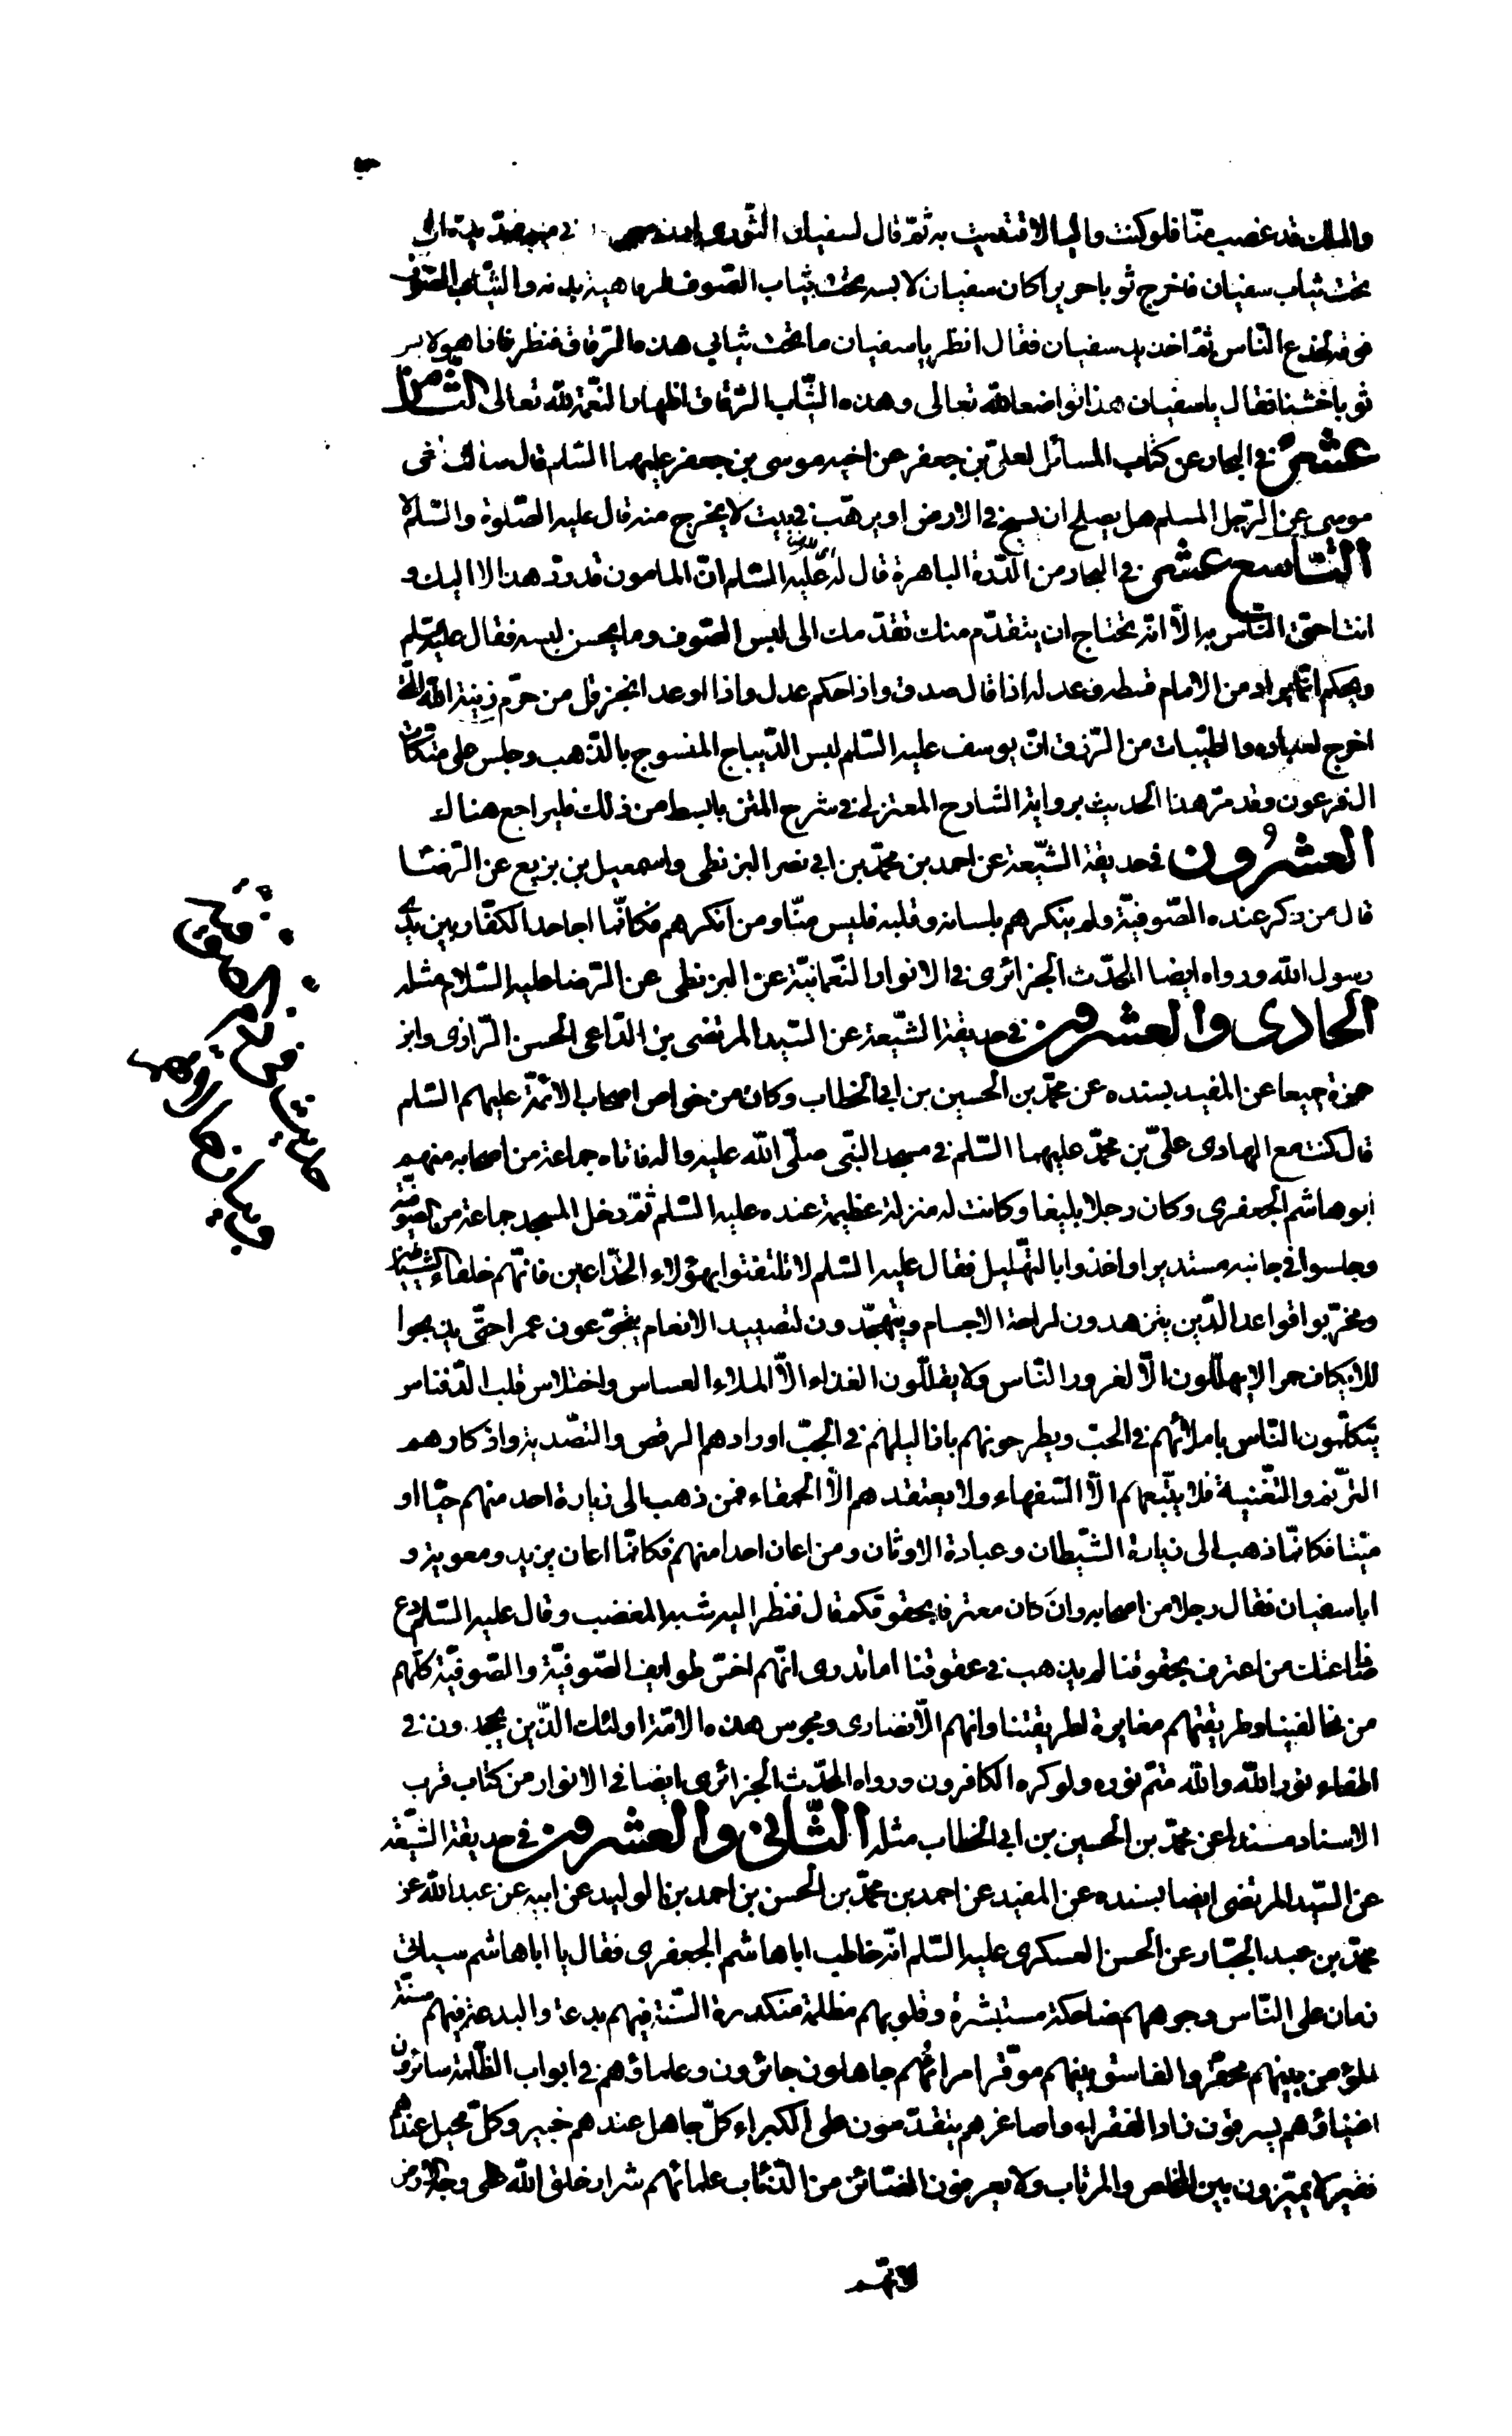 والملك قد غضب منّا فلو كنت واليا لاقتديت به ثمّ قال لسفيان الثّوري في يده الى
تحت ثياب سفيان فاخرج ثوبا حريرا كان سفيان لابسه تحت ثياب الصّوف والثياب الصّوف
فوقه لخدع النّاس ثمّ اخذ بيد سفيان فقال انظر يا سفيان ما تحت ثيابي هذه الرّقاق فنظر فاذا هو لابس
ثوبا خشنا فقال يا سفيان هذا تواضعا للّه تعالى وهذه الثّياب الرّقاق اظهارا لنعمة للّه تعالى الثّامن
عشر في البحار عن كتاب المسائل لعليّ بن جعفر عن اخيه موسى بن جعفر عليهما السّلم قال سألت اخى
موسى عن الرّجل المسلم هل يصلح ان يسيح في الارض او يرهّب في بيت لا يخرج منه قال عليه الصّلوة والسّلم لا
التّاسع عشر في البحار من الدّرة الباهرة قال له عليه السّلم انّ المامون قد ردّ هذا الا اليك و
انت احقّ النّاس به الّا انّه تحتاج ان يتقدّم منك تقدّمك الى لبس الصّوف وما يحسن لبسه فقال عليه السّلم
ويحكم انّما يراد من الامام قسطه وعدله اذا قال صدق واذا حكم عدل واذا اوعد انجز قل من حرّم زينة اللّه الّتى
اخرج لعباده والطيّبات من الرّزق انّ يوسف عليه السّلم لبس الدّيباج المنسوج بالذّهب وجلس على متكآت
الفرعون وقد مرّ هذا الحديث برواية الشارح المعتزلي في شرح المتن بابسط من ذلك فليراجع هناك
العشرون في حديقة الشّيعة عن احمد بن محمّد بن ابي نصر البزنطى واسمعيل بن بزيع عن الرّضا
قال من ذكر عنده الصّوفيّة ولم ينكرهم بلسانه وقلبه فليس منّا ومن انكرهم فكانّما جاهد الكفّار بين يدى
رسول الله ورواه ايضا المحدّث الجزائرى في الانوار النّعمانيّة عن البزنطى عن الرّضا عليه السّلام مثله
الحادى والعشرون في حديقة الشّيعة عن السّيد المرتضى بن الدّاعى الحسن الرّازى وابن
حمزة جميعا عن المفيد بسنده عن محمّد بن الحسين بن ابي الخطاب وكان من خواصّ اصحاب الائمّة عليهم السّلم
قال كنت مع الهادى علىّ بن محمّد عليهما السّلم في مسجد النّبى صلّى اللّه عليه واله فاتاه جماعة من اصحابه منهم
ابو هاشم الجعفرى وكان رجلا بليغا وكانت له منزلة عظيمة عنده عليه السّلم ثمّ دخل المسجد جماعة من الصّوفيّة
وجلسوا في جانبه مستديرا واخذوا بالتّهليل فقال عليه السّلم لا تلتفتوا بهؤلاء الخدّاعين فانّهم خلفاء الشّياطين
ومخرّبوا قواعد الدّين يتزهدون لراحة الاجسام ويتهجّدون لتصييد الانعام يتجوّعون عمرا حتّى يذبحوا
للايكاف حمرا لا يهلّلون الّا لغرور النّاس ولا يقلّلون الغذاء الّا لملاء العساس واختلاس قلب الدّفناس
يتكلّمون النّاس باملائهم في الحبّ ويطرحونهم باذاليلهم في الجبّ اورادهم الرقص والتصّدية واذكارهم
التّرنّم والتغنية فلا يتّبعهم الّا السّفهاء ولا يعتقدهم الّا الحمقاء فمن ذهب الى زيارة احد منهم حيّا او
ميّتا فكانّما ذهب الى زيارة الشّيطان وعبادة الاوثان ومن اعان احدا منهم فكانّما اعان يزيد ومعوية و
ابا سفيان فقال رجل من اصحابه وان كان معترفا بحقوقكم قال فنظر اليه شبه المغضب وقال عليه السّلم دع
ذا عنك من اعترف بحقوقنا لم يذهب في عقوقنا اما تدرى انّهم اخسّ طوايف الصّوفيّة والصّوفيّة كلّهم
من مخالفينا وطريقتهم مغايرة لطريقتنا وانهم الّا نصارى ومجوس هذه الامّة اولئك الّذين يجهدون في
اطفاء نور اللّه واللّه متمّ نوره ولو كره الكافرون ورواه المحدّث الجزائرى ايضا في الانوار من كتاب قرب
الاسناد مسندا عن محمّد بن الحسين بن ابي الخطاب مثله الثّاني والعشرون في حديقة الشّيعة
عن السّيد المرتضى ايضا بسنده عن المفيد عن احمد بن محمّد بن الحسن بن احمد بن الوليد عن ابيه عن عبد اللّه عن
محمّد بن عبد الجبّار عن الحسن العسكرى عليه السّلم انّه خاطب ابا هاشم الجعفرى فقال يا ابا هاشم سياتى
زمان على النّاس وجوههم ضاحكة مستبشرة وقلوبهم مظلمة منكدرة السّنة فيهم بدعة والبدعة فيهم سنّة
المؤمن بينهم محقّر والفاسق بينهم موقّر امرائهم جاهلون جائرون وعلماؤهم في ابواب الظّلمة سائرون
اغنياؤهم يسرقون زاد الفقراء واصاغرهم يتقدّمون على الكبراء كلّ جاهل عندهم خبير وكلّ محيل عندهم
فقير لا يميّزون بين المخلص والمرتاب ولا يعرفون الضّائن من الذّئاب علمائهم شرار خلق اللّه على وجه الارض
لانّهم
حديث في ذم الصوفيّة
وبيان